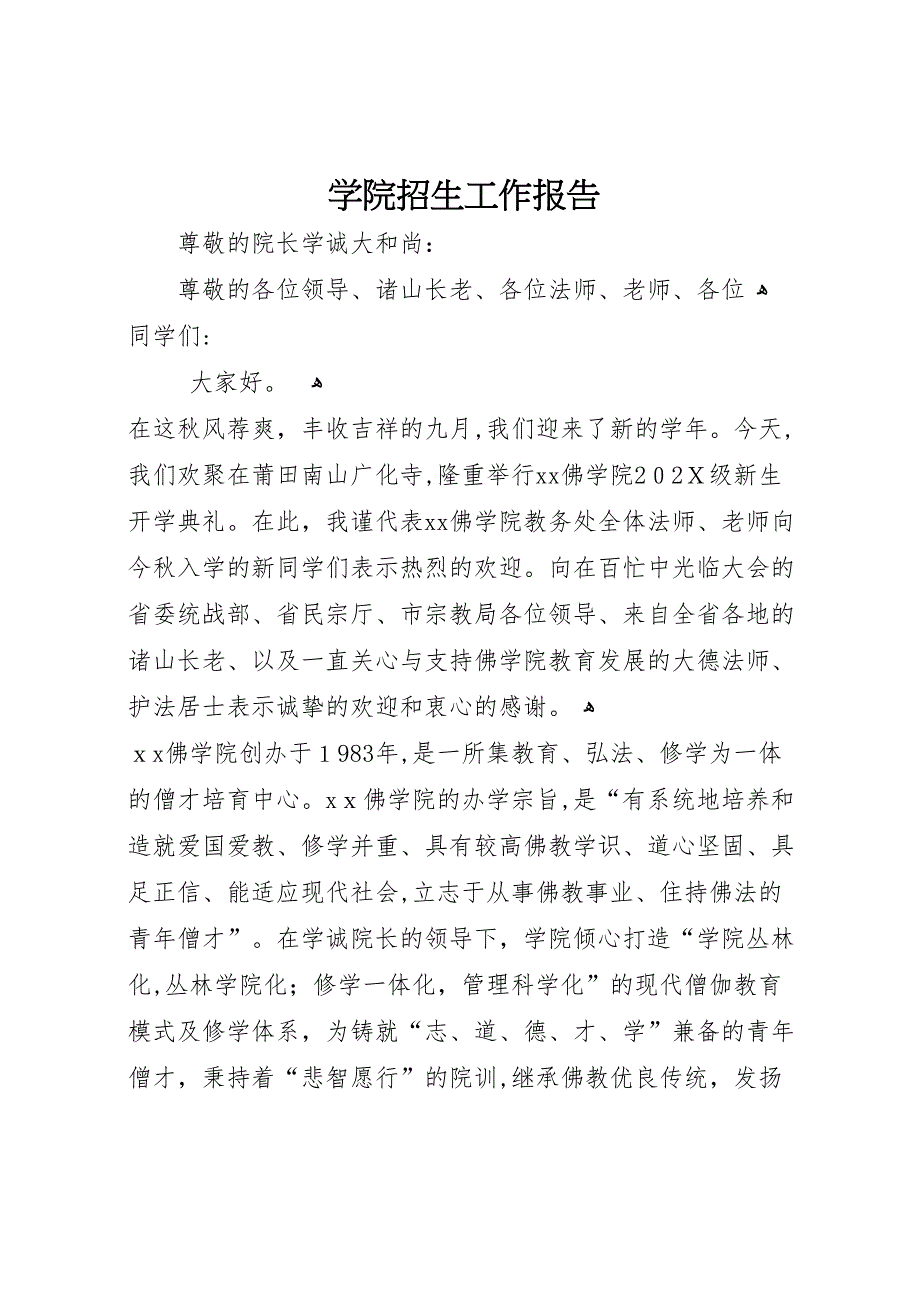 学院招生工作报告
尊敬的院长学诚大和尚：
尊敬的各位领导、诸山长老、各位法师、老师、各位 ﻫ
同学们:
大家好。 ﻫ
在这秋风荐爽，丰收吉祥的九月,我们迎来了新的学年。今天,
我们欢聚在莆田南山广化寺,隆重举行xx佛学院202X级新生
开学典礼。在此，我谨代表xx佛学院教务处全体法师、老师向
今秋入学的新同学们表示热烈的欢迎。向在百忙中光临大会的
省委统战部、省民宗厅、市宗教局各位领导、来自全省各地的
诸山长老、以及一直关心与支持佛学院教育发展的大德法师、
护法居士表示诚挚的欢迎和衷心的感谢。 ﻫ
xx佛学院创办于1983年,是一所集教育、弘法、修学为一体
的僧才培育中心。xx佛学院的办学宗旨,是“有系统地培养和
造就爱国爱教、修学并重、具有较高佛教学识、道心坚固、具
足正信、能适应现代社会,立志于从事佛教事业、住持佛法的
青年僧才”。在学诚院长的领导下，学院倾心打造“学院丛林
化,丛林学院化；修学一体化，管理科学化”的现代僧伽教育
模式及修学体系，为铸就“志、道、德、才、学”兼备的青年
僧才，秉持着“悲智愿行”的院训,继承佛教优良传统，发扬